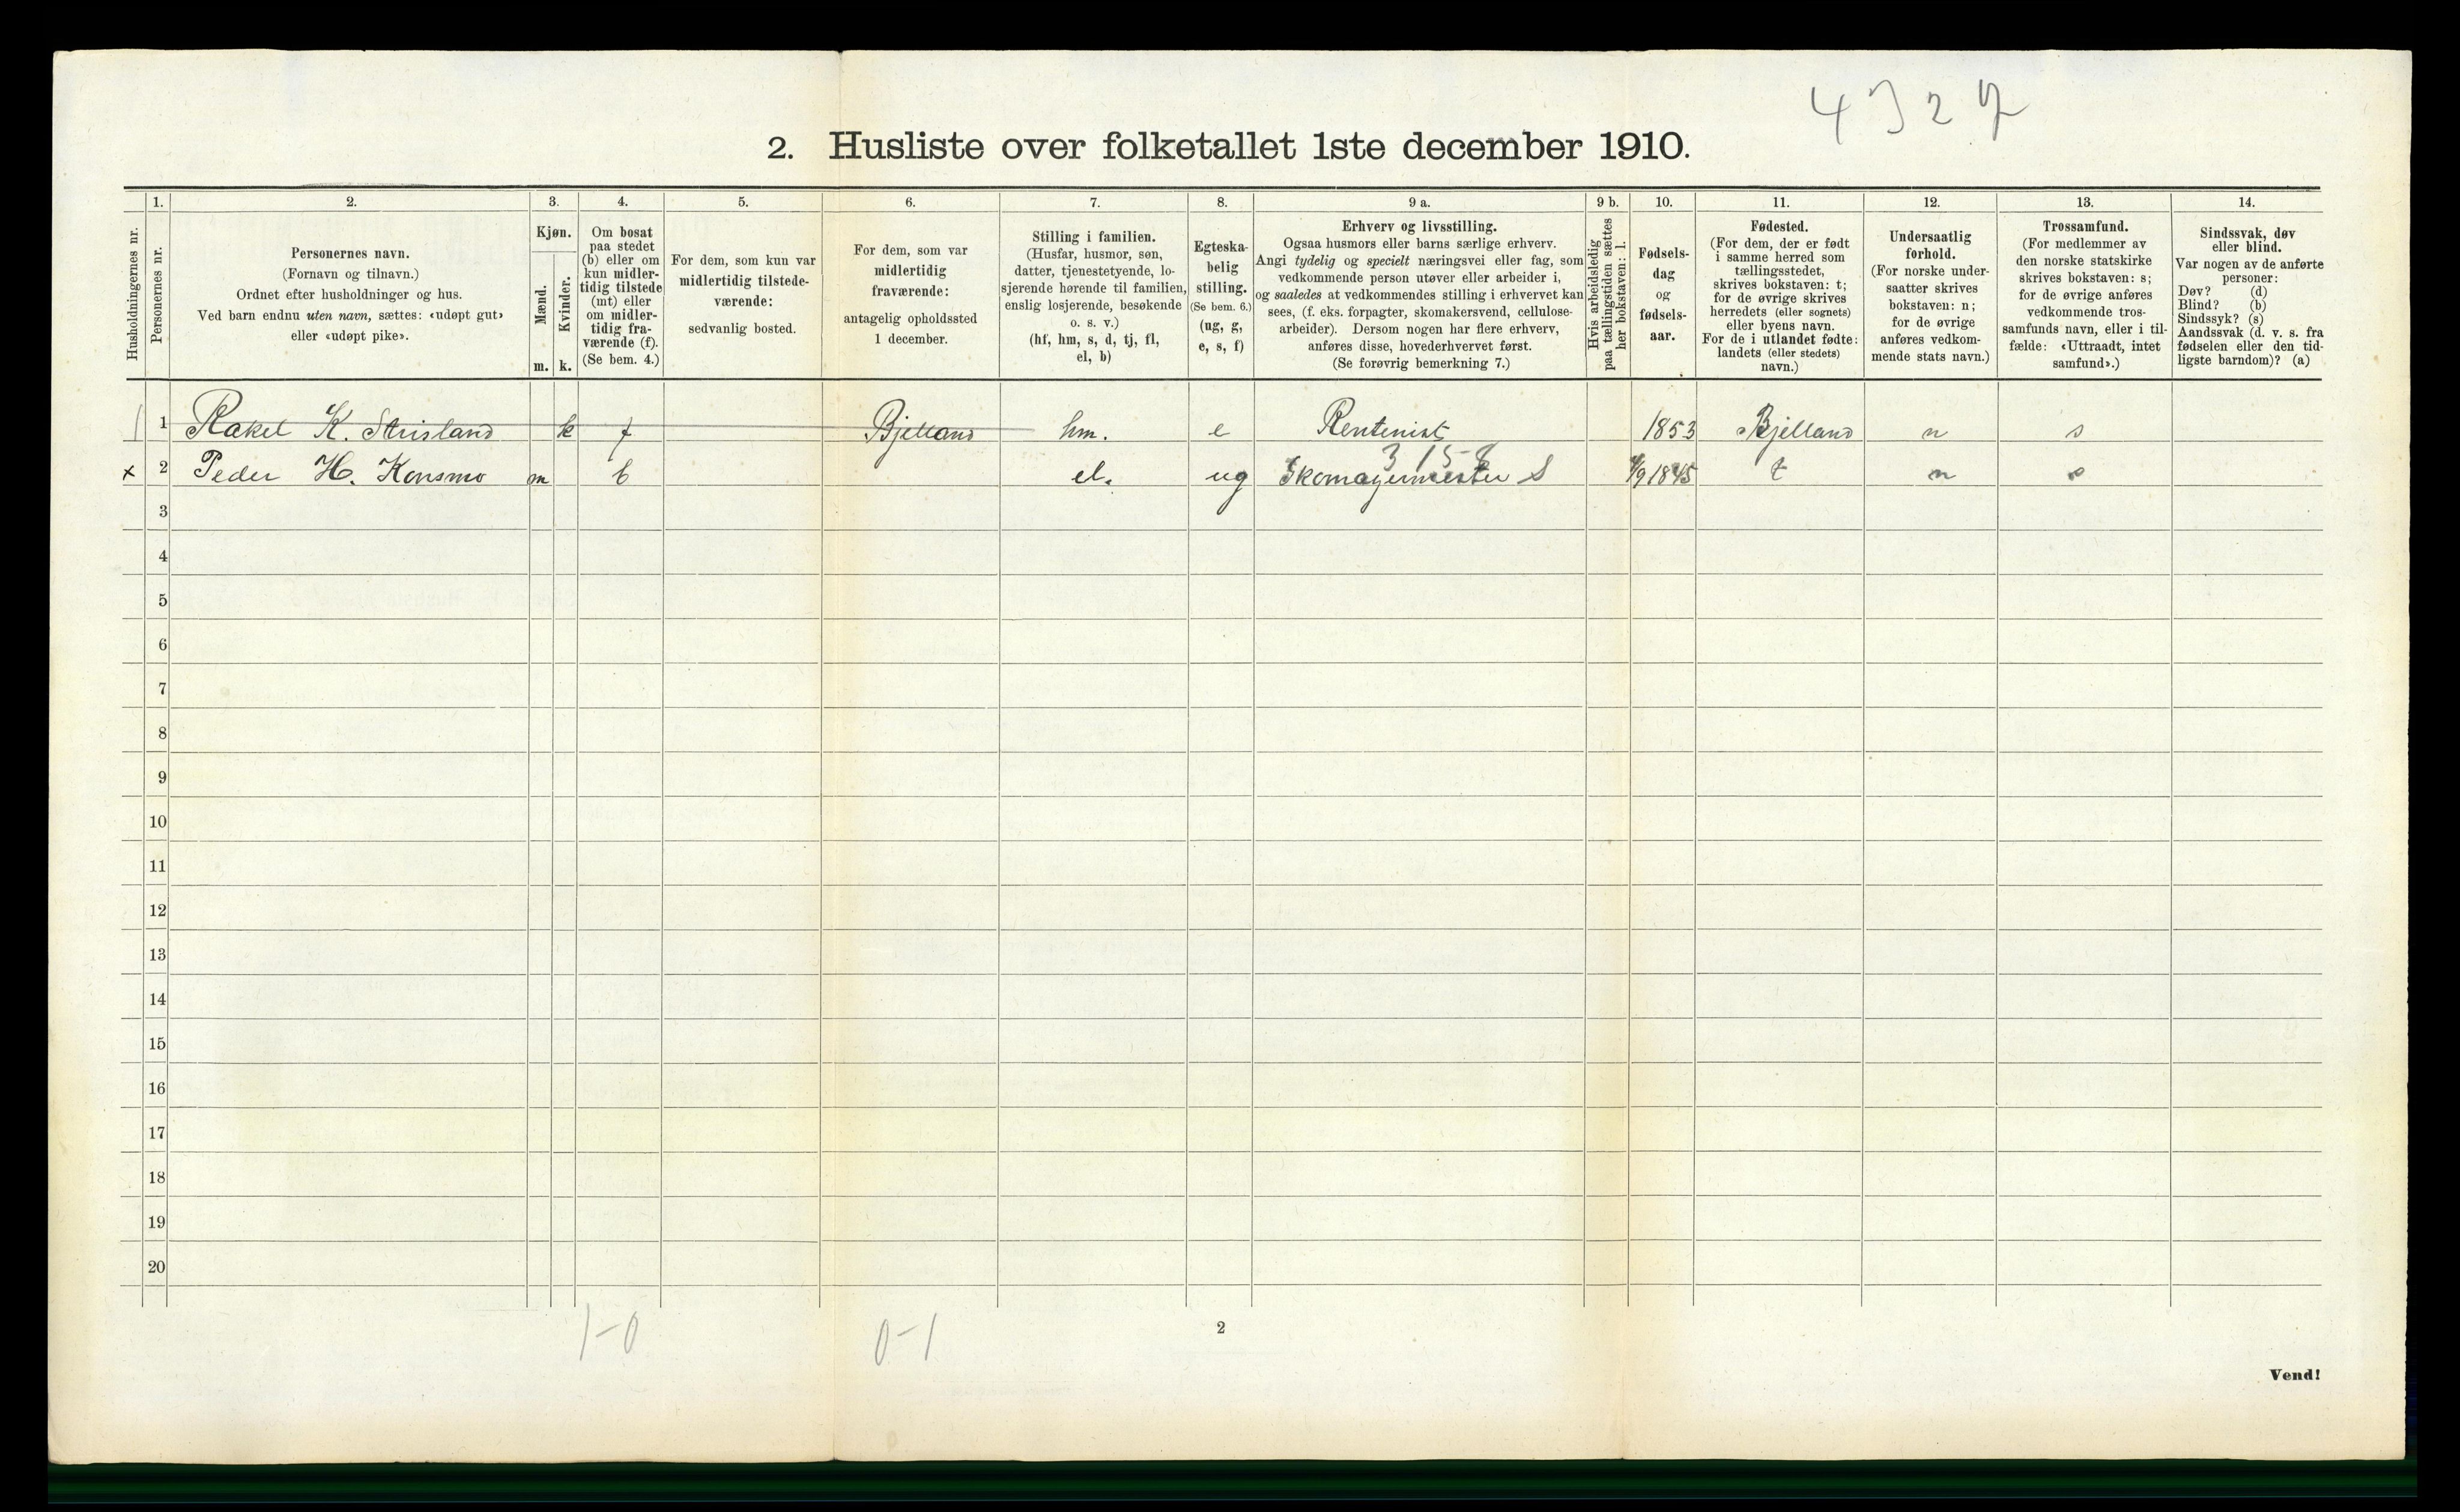 4327
2. Husliste over folketallet 1ste december 1910.
Husholdningernes nr.
1.
Personernes nr.
2.
Personernes navn.
(Fornavn og tilnavn.)
Ordnet efter husholdninger og hus.
Ved barn endnu uten navn, sættes: «udøpt gut»
eller «udøpt pike».
3.
Kjøn.
Mænd.
m.
Kvinder.
k.
4.
Om bosat
paa stedet
(b) eller om
kun midler-
tidig tilstede
(mt) eller
om midler-
tidig fra-
værende (f).
(Se bem. 4.)
5.
For dem, som kun var
midlertidig tilstede-
værende:
sedvanlig bosted.
6.
For dem, som var
midlertidig
fraværende:
antagelig opholdssted
1 december.
7.
Stilling i familien.
(Husfar, husmor, søn,
datter, tjenestetyende, lo-
sjerende hørende til familien,
enslig losjerende, besøkende
o. s. v.)
(hf, hm, s, d, tj, fl,
el, b)
8.
Egteska-
belig
stilling.
(Se bem. 6.)
(ug, g,
e, s, f)
9 a.
Erhverv og livsstilling.
Ogsaa husmors eller barns særlige erhverv.
Angi tydelig og specielt næringsvei eller fag, som
vedkommende person utøver eller arbeider i,
og saaledes at vedkommendes stilling i erhvervet kan
sees, (f. eks. forpagter, skomakersvend, cellulose-
arbeider). Dersom nogen har flere erhverv,
anføres disse, hovederhvervet først.
(Se forøvrig bemerkning 7.)
9 b.
Hvis arbeidsledig
paa tællingstiden sættes
her bokstaven: l.
10.
Fødsels-
dag
og
fødsels-
aar.
11.
Fødested.
(For dem, der er født
i samme herred som
tællingsstedet,
skrives bokstaven: t;
for de øvrige skrives
herredets (eller sognets)
eller byens navn.
For de i utlandet fødte:
landets (eller stedets)
navn.)
12.
Undersaatlig
forhold.
(For norske under-
saatter skrives
bokstaven: n;
for de øvrige
anføres vedkom-
mende stats navn.)
13.
Trossamfund.
(For medlemmer av
den norske statskirke
skrives bokstaven: s;
for de øvrige anføres
vedkommende tros-
samfunds navn, eller i til-
fælde: «Uttraadt, intet
samfund».)
14.
Sindssvak, døv
eller blind.
Var nogen av de anførte
personer:
Døv? (d)
Blind? (b)
Sindssyk? (s)
Aandssvak (d. v. s. fra
fødselen eller den tid-
ligste barndom)? (a)
1 Rakel K. Strisland k f Bjelland hm. e Rentenist 1853 Bjelland n s
3158
x 2 Peder H. Konsmo m b el. ug Skomagermester S 4/9 1845 t n s
3
4
5
6
7
8
9
10
11
12
13
14
15
16
17
18
19
20
1-0 0-1
2
Vend!